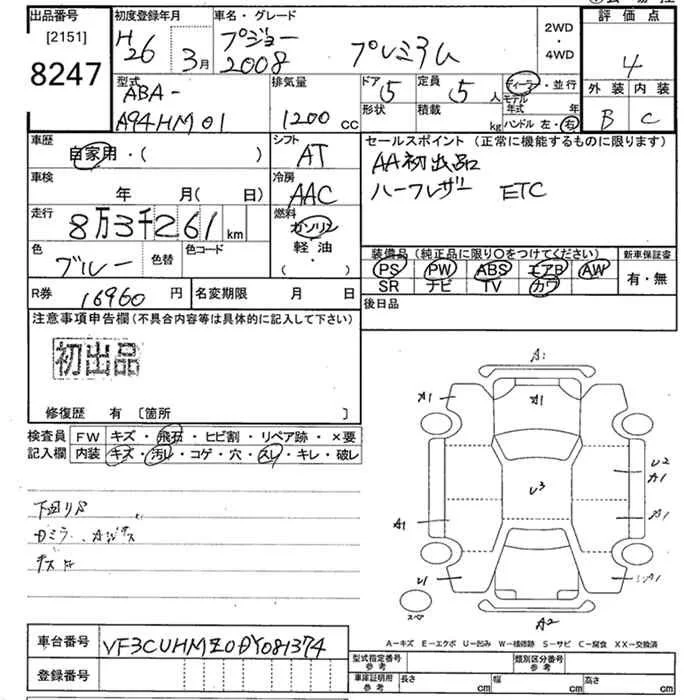 出品番号
[2151]
8247
初度登録年月
H26 3月
車名・グレード
プジョー
2008 プレミアム
2WD
・
4WD
評価点
4
外装 内装
B C
型式
ABA-
A94HM01
排気量
1200 CC
ドア 5
形状
定員 5 人
積載 kg
ディーラー・並行
モデル年式 年
ハンドル 左・右
車歴
自家用・( )
シフト
AT
セールスポイント (正常に機能するものに限ります)
AA初出品
ハーフレザー ETC
車検
年 月( 日)
冷房
AAC
走行
8万3千261 km
燃料
ガソリン
軽・油
・( )
色
ブルー
色替
色コード
装備品(純正品に限り〇をつけてください)
PS PW ABS エアB AW
SR ナビ TV カワ
新車保証書
有・無
R券 16960 円
名変期限 月 日
後日品
注意事項申告欄(不具合内容等は具体的に記入して下さい)
初出品
修復歴 有 [箇所 ]
検査員
記入欄
FW キズ・飛石・ヒビ割・リペア跡・×要
内装 キズ・汚レ・コゲ・穴・スレ・キレ・破レ
下回りS
A1
A1
U3
U2
A1
A1
A1
U1
A2
スペア
A-キズ E-エクボ U-凹み W-補修跡 S-サビ C-腐食 XX-交換済
車台番号 VF3CUHMZ0DY081374
登録番号
型式指定番号
参考
類別区分番号
参考
車庫証明用
参考
長さ cm
幅 cm
高さ cm